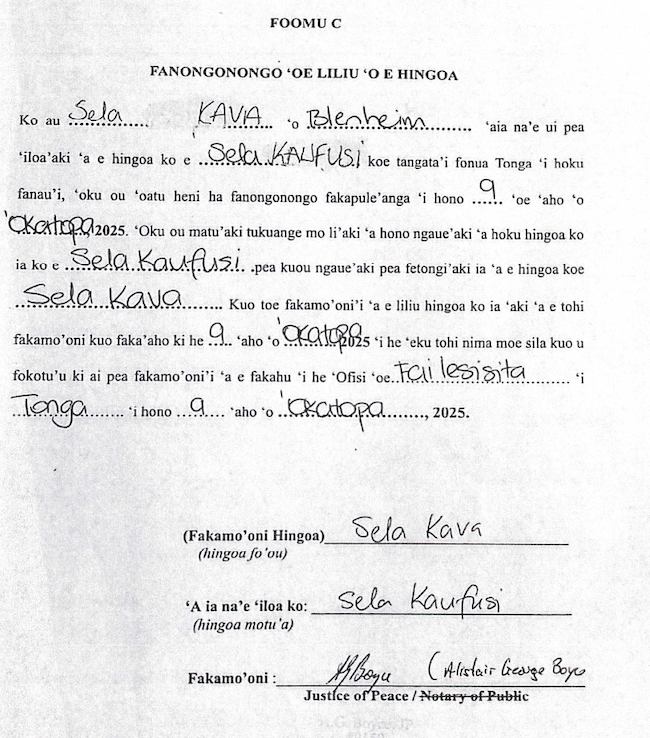 FOOMU C
FANONGONONGO ‘OE LILIU ‘O E HINGOA
Ko au Sela KAVA ‘o Blenheim ‘aia na’e ui pea
‘iloa’aki ‘a e hingoa ko e Sela KAUFUSI koe tangata’i fonua Tonga ‘i hoku
fanau’i, ‘oku ou ‘oatu heni ha fanongonongo fakapule’anga ‘i hono 9 ‘oe ‘aho ‘o
'Okatopa 2025. ‘Oku ou matu’aki tukuange mo li’aki ‘a hono ngaue’aki ‘a hoku hingoa ko
ia ko e Sela Kaufusi .pea kuou ngaue'aki pea fetongi’aki ia ‘a e hingoa koe
Sela Kava Kuo toe fakamo’oni’i ‘a e liliu hingoa ko ia ‘aki ‘a e tohi
fakamo’oni kuo faka’aho ki he 9 ‘aho ‘o 'Okatopa 2025 ‘i he ‘eku tohi nima moe sila kuo u
fokotu’u ki ai pea fakamo’oni’i ‘a e fakahu ‘i he ‘Ofisi ‘oe Failesisita ‘i
Tonga ‘i hono 9 ‘aho ‘o 'Okatopa, 2025.
(Fakamo’oni Hingoa) Sela Kava
(hingoa fo’ou)
‘A ia na’e ‘iloa ko: Sela Kaufusi
(hingoa motu’a)
Fakamo’oni : (Alistair George Boyce
Justice of Peace / Notary of Public